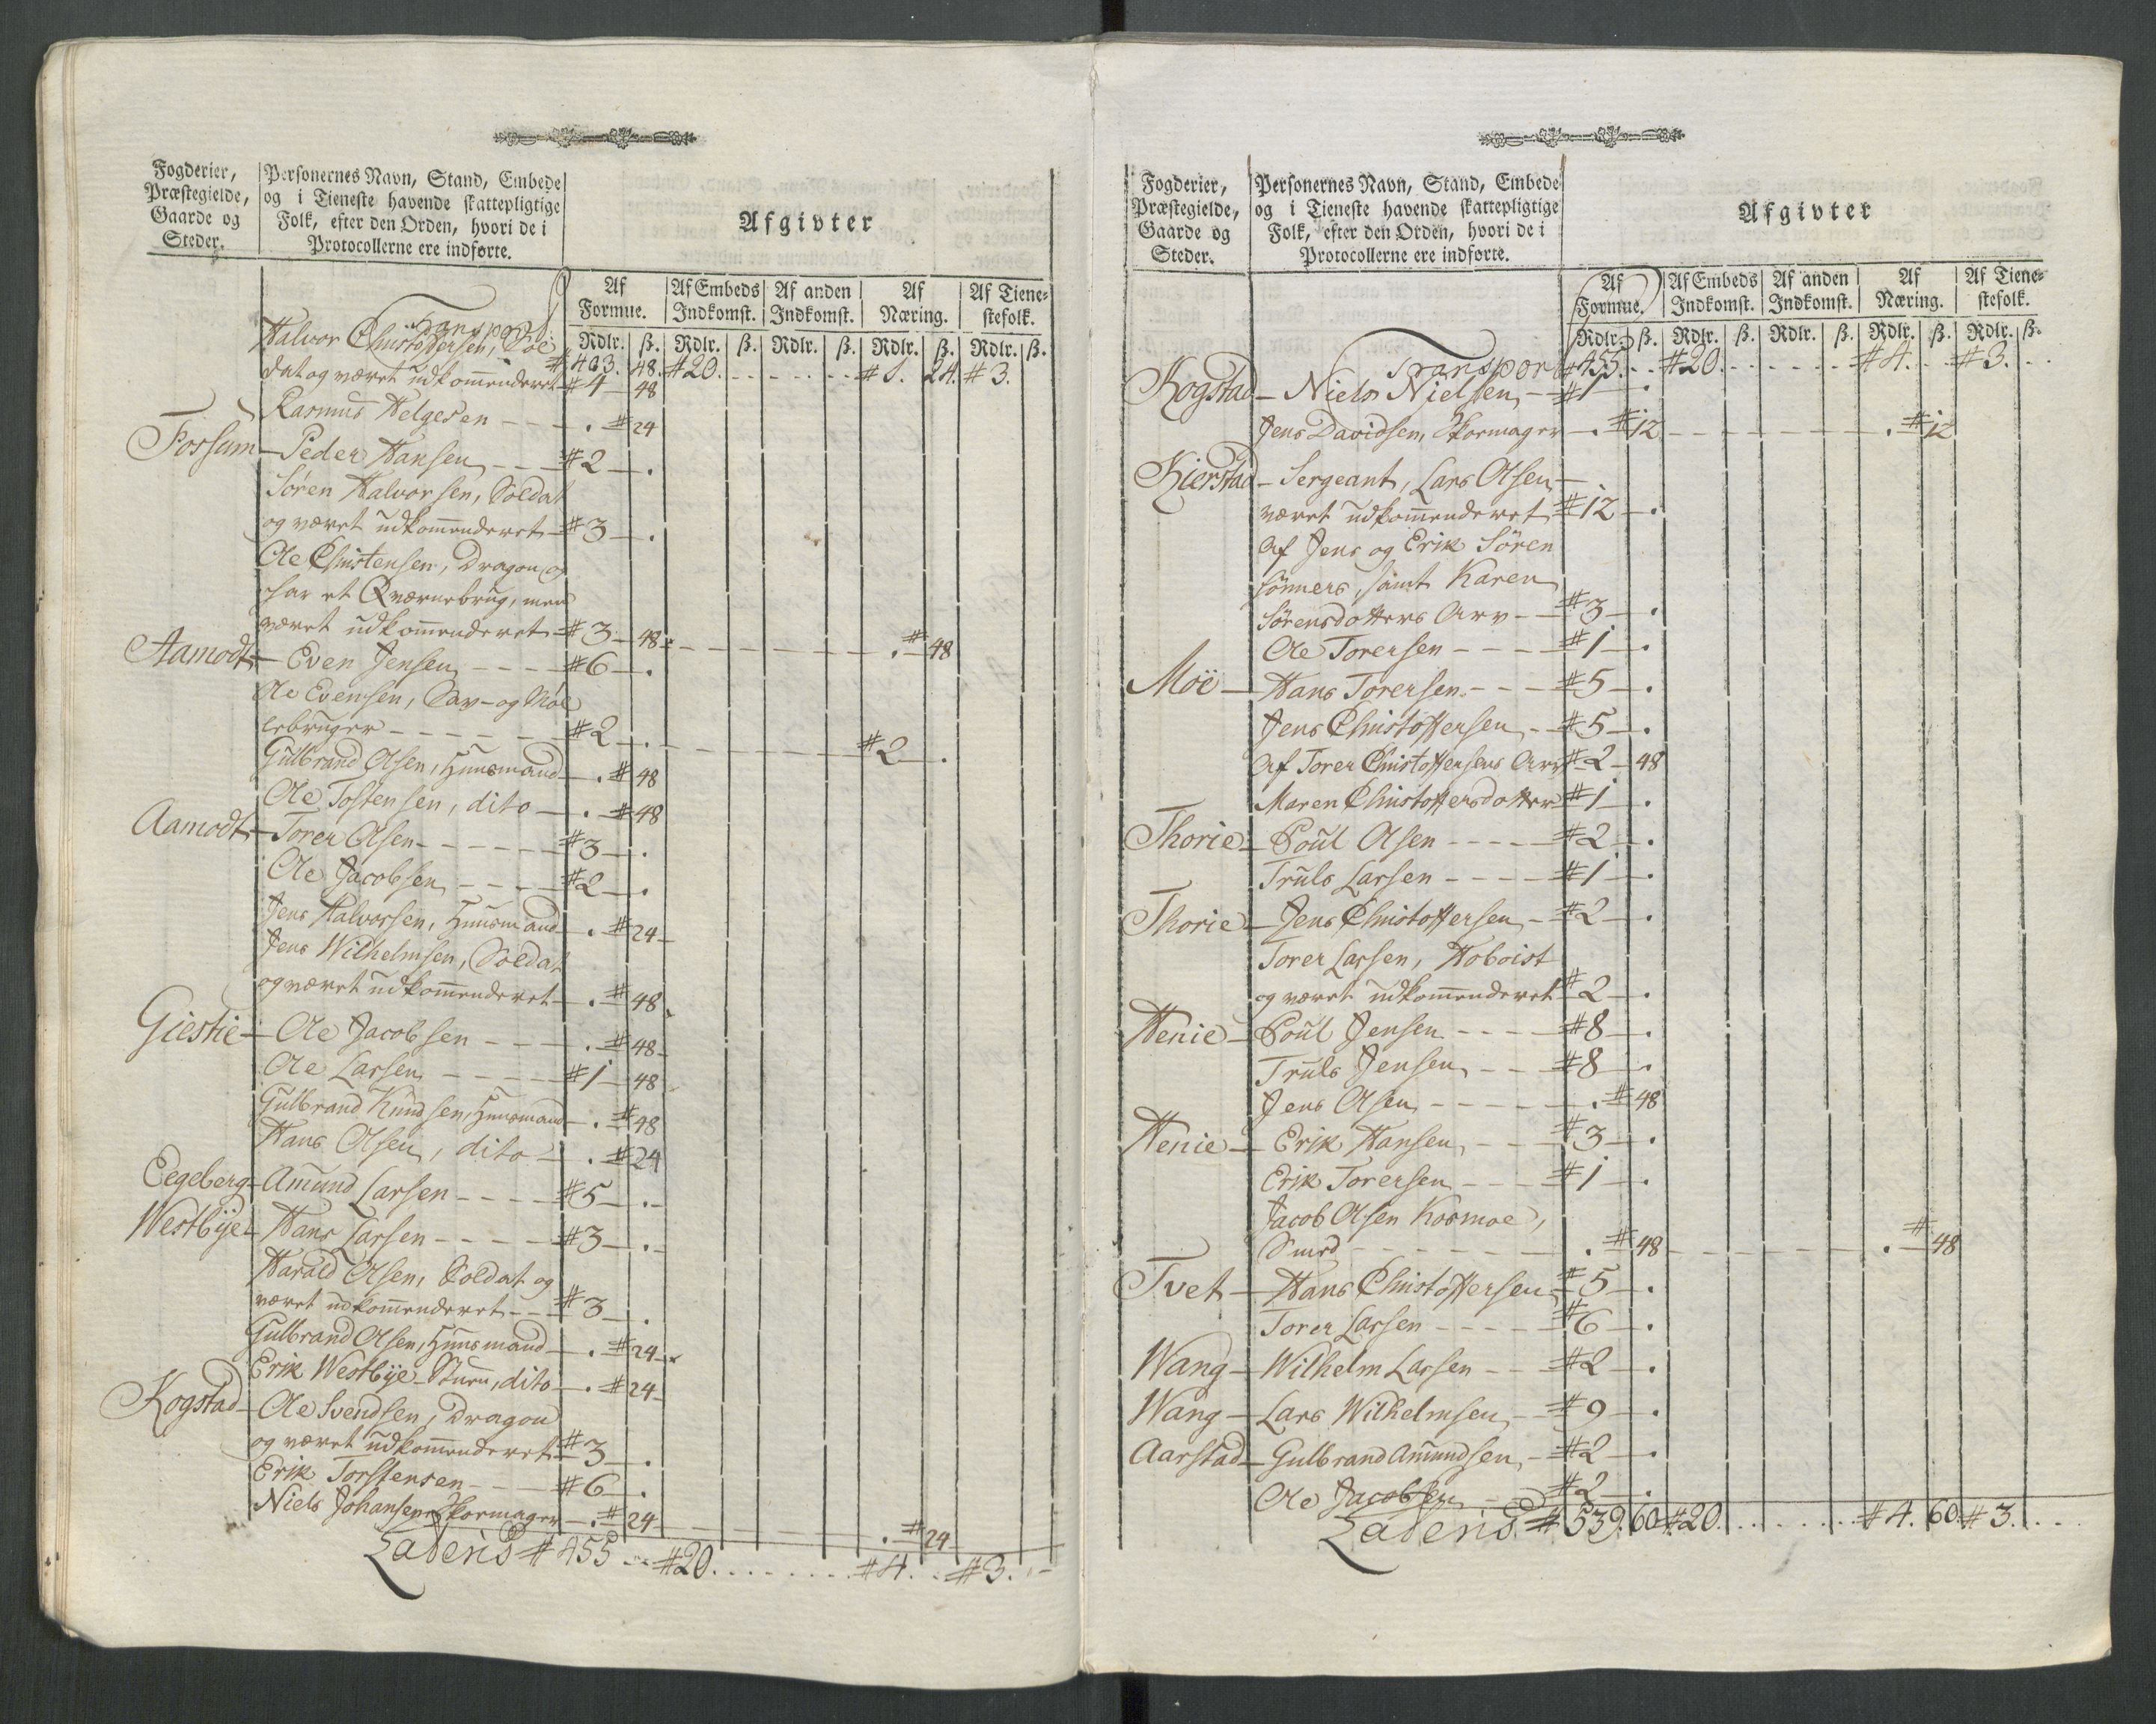 Fogderier,
Præstegielde,
Gaarde og
Steder.
Personernes Navn, Stand, Embede
og i Tieneste havende skattepligtige
Folk, efter den Orden, hvori de i
Protocollerne ere indførte.
Afgivter
Af Formue. Af Embeds Indkomst. Af anden Indkomst. Af Næring. Af Tienestefolk.
Rdlr. ß. Rdlr. ß. Rdlr. ß. Rdlr. ß. Rdlr. ß.
Transport # 403. 48. #20. . . . . . #1. 24. #3.
Halvor Christoffersen, Sol
dat og været udkom̄enderet #4 48
Rasmus Helgesen - - - . #24
Fossum - Peder Hansen - - - #2 - .
Søren Halvorsen, Soldat
og været udkom̄enderet - #3 - .
Ole Christensen, Dragon og
har et Qværnebrug, men
været udkom̄enderet - #3 - 48 - - - - - . #48
Aamodt - Even Jensen - - - - #6 - .
Ole Evensen, Sav- og Møl
lebruger - - - - - - #2 - . - - - - - #2 - .
Gulbrand Olsen, Huusmand - . #48
Ole Tostensen, dito - . - #48
Aamodt - Torer Olsen - - - - - #3 - .
Ole Jacobsen - - - - #2 - .
Jens Halvorsen, Huusmand - . #24 -
Jens Wilhelmsen, Soldat
og været udkom̄enderet - . #48
Giestie - Ole Jacobsen - - - . #48 -
Ole Larsen - - - - - #1 - 48
Gulbrand Knudsen, Huusmand - . #48
Hans Olsen, dito - . #24
Eegeberg - Amund Larsen - - - - #5 - . -
Westbye - Hans Larsen - - - - - #3 - . -
Harald Olsen, Soldat og
været udkom̄enderet - - #3 - .
Gulbrand Olsen, Huusmand - . #24 -
Erik Westbye-Stuen, dito - . #24 -
Kogstad - Ole Svendsen, Dragon
og været udkom̄enderet #3 - .
Erik Torstensen - - - #6 - .
Niels Johansen Skomager - . #24 - - - - - . #24
Lateris # 455 - - #20. . . . . . . . #4. . #3. . -
Fogderier,
Præstegielde,
Gaarde og
Steder.
Personernes Navn, Stand, Embede
og i Tieneste havende skattepligtige
Folk, efter den Orden, hvori de i
Protocollerne ere indførte.
Afgivter
Af Formue. Af Embeds Indkomst. Af anden Indkomst. Af Næring. Af Tienestefolk.
Rdlr. ß. Rdlr. ß. Rdlr. ß. Rdlr. ß. Rdlr. ß.
Transport #455. . . #20. . . . . . . #4. . #3. . .
Kogstad - Niels Nielsen - #1 - .
Jens Davidsen, Skomager - . #12 - - - - - . #12
Kierstad - Sergeant, Lars Olsen -
været udkom̄enderet #12 - .
Af Jens og Erik Sören
sönners, samt Karen
Sörensdotters Arv - - #3 - .
Ole Torersen - - - - #1 - .
Moe - Hans Torersen - - - #5 - .
Jens Christoffersen - #5 - .
Af Torer Christoffersens Arv #2 - 48
Maren Christoffersdotter #1 - .
Thorie - Poul Olsen - - - - #2 - .
Truls Larsen - - - - #1 - .
Thorie - Jens Christoffersen - #2 - .
Torer Larsen, Hoboist
og været udkom̄enderet #2 - .
Henie - Poul Jensen - - - - #8 - .
Truls Jensen - - - #8 - .
Jens Olsen - - - - - . #48
Henie - Erik Hansen - - - #3 - .
Erik Torersen - - - #1 - .
Jacob Olsen Kosmoe,
Smed - - - - - - . #48 - - - - - . #48
Tvet - Hans Christoffersen #5 - .
Torer Larsen - - - - #6 - .
Wang - Wilhelm Larsen - - #2 - .
Wang - Lars Wilhelmsen - #9 - .
Aarstad - Gulbrand Amundsen - #2 - .
Ole Jacobsen - - #2 - .
Lateris # 539. 60 #20. . . . . . . . #4. 60. #3. . . .